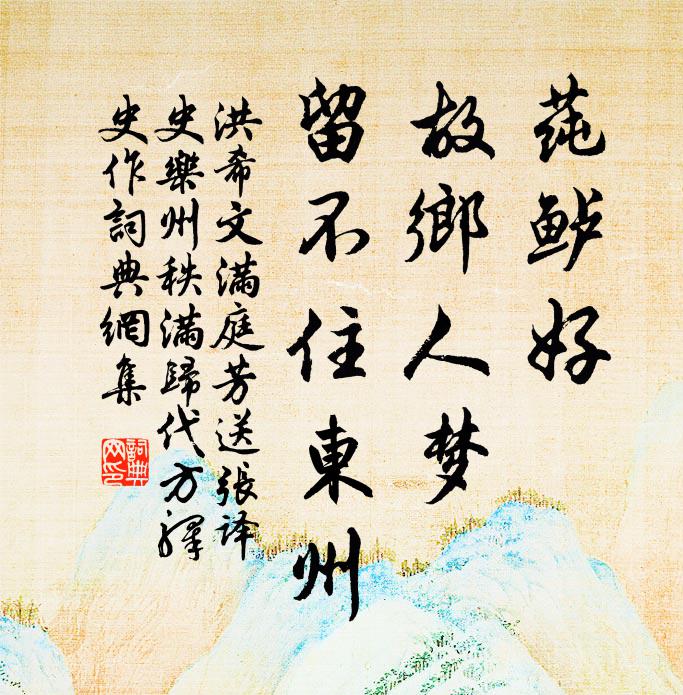 莼鲈好
故鄉人梦
留不住東州
洪希文滿庭芳送張译
史樂州秩滿歸代方禪
史作詞典網集
詞典
网印